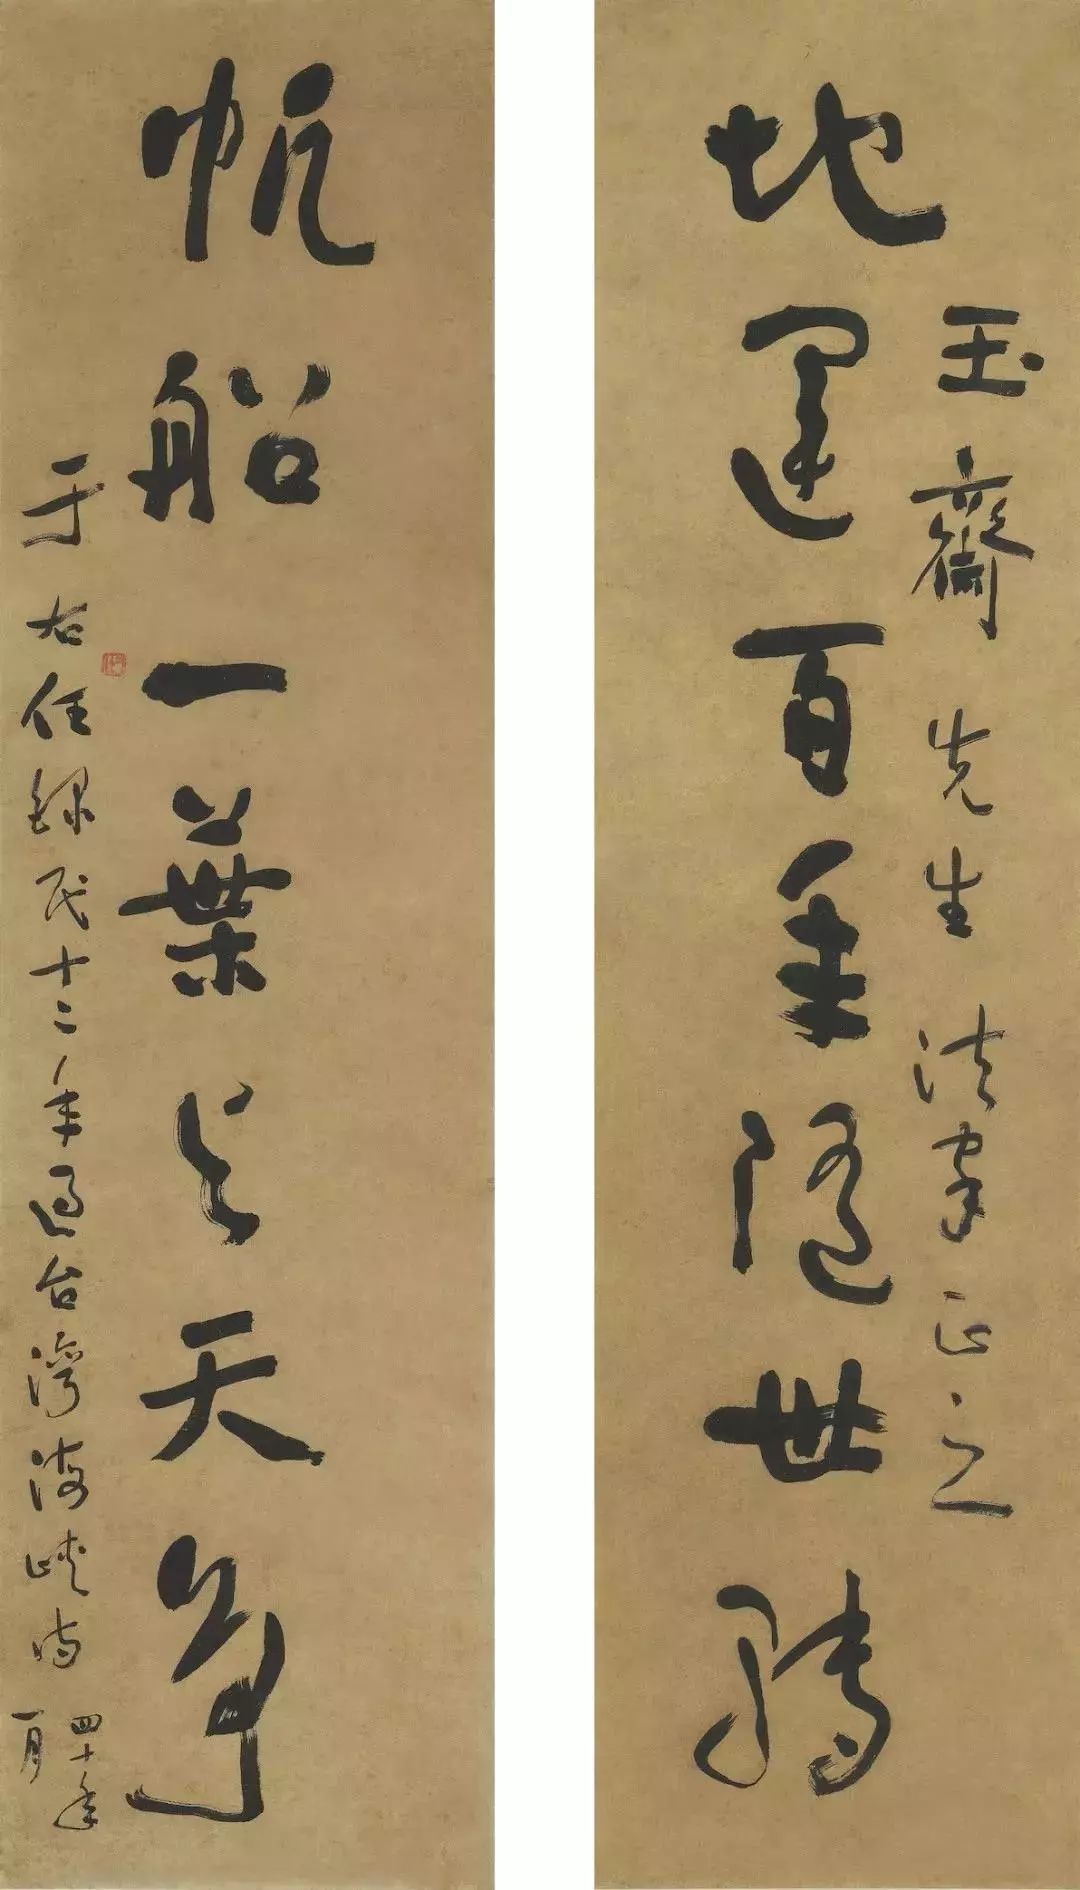 玉齋先生法家正之
地運百年隨世轉
帆船一葉與天爭
于右任錄民十二年過台灣海峽時
四十年
一月